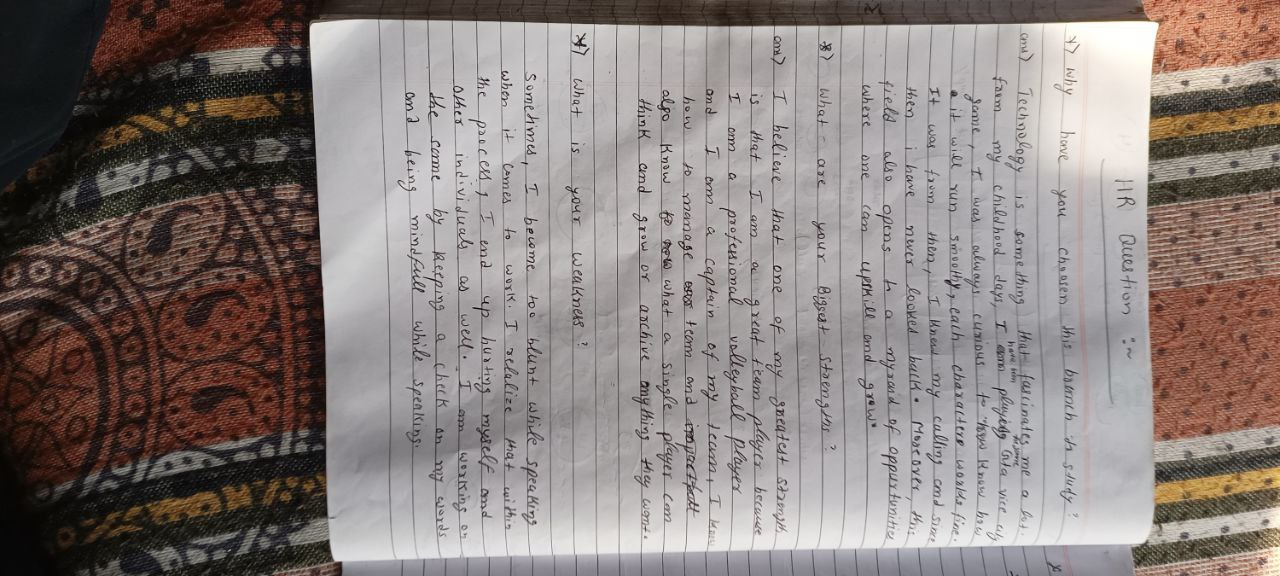 HR Question :~
*> Why have you choosen this branch to study?
ans> Technology is something that fascinates me a lot.
from my childhood days, I have been playing Gta vice city
game, I was always curious to know how
it will run smoothy, each characters works fine.
It was from then, I knew my calling and since
then i have never looked back. Moreover, this
field also opens to a myraid of oppurtunities
where one can upskill and grow.
*> What are your Biggest Strengths?
ans> I believe that one of my greatest strength
is that I am a great team player because
I am a profesional volleyball player
and I am a captain of my team, I know
how to manage team and
also know what a single player can
think and grow or archive anything they want.
*> What is your weakness?
Sometimes, I become too blunt while speaking
when it comes to work. I relalize that within
the process, I end up hurting myself and
other individuals as well. I am working on
the same by keeping a check on my words
and being mindfull while speaking.